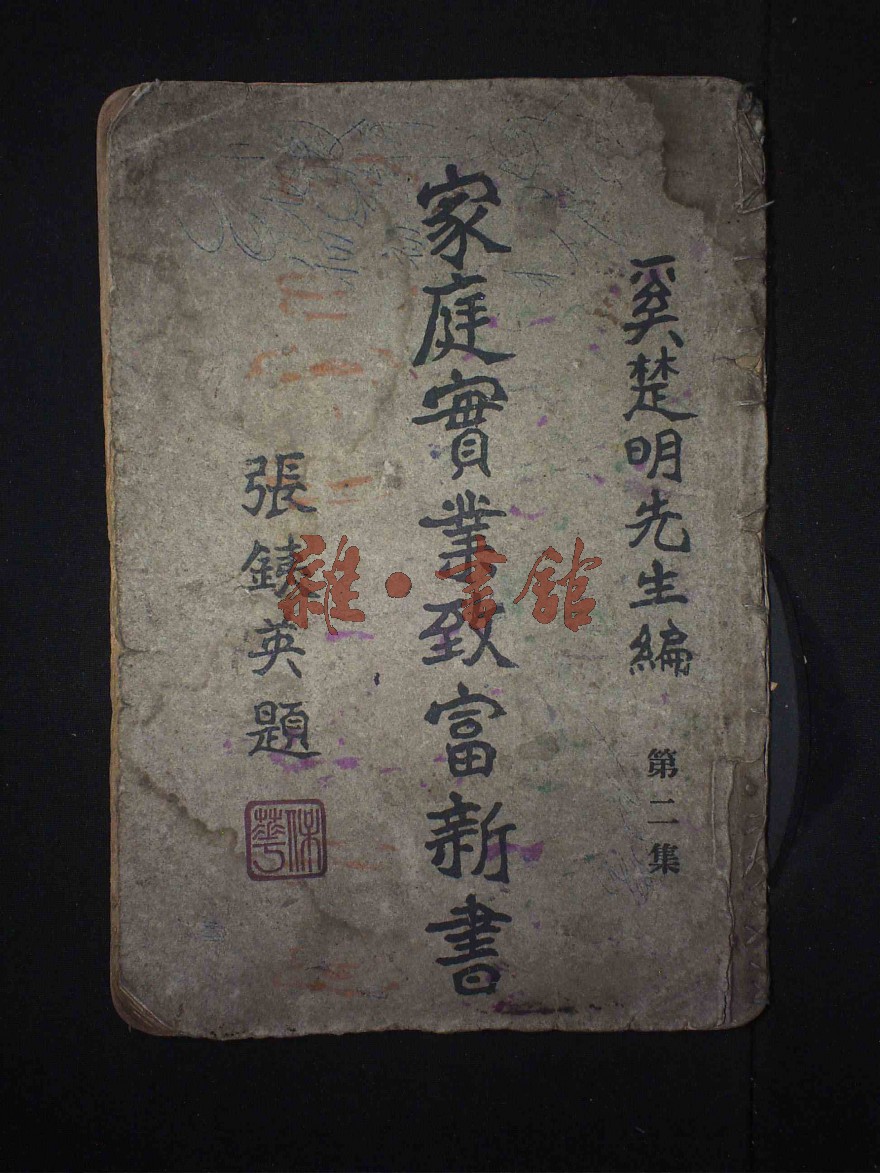 奚楚明先生編
第二集
家庭實業致富新書
張銕英題
保華
雜·書館